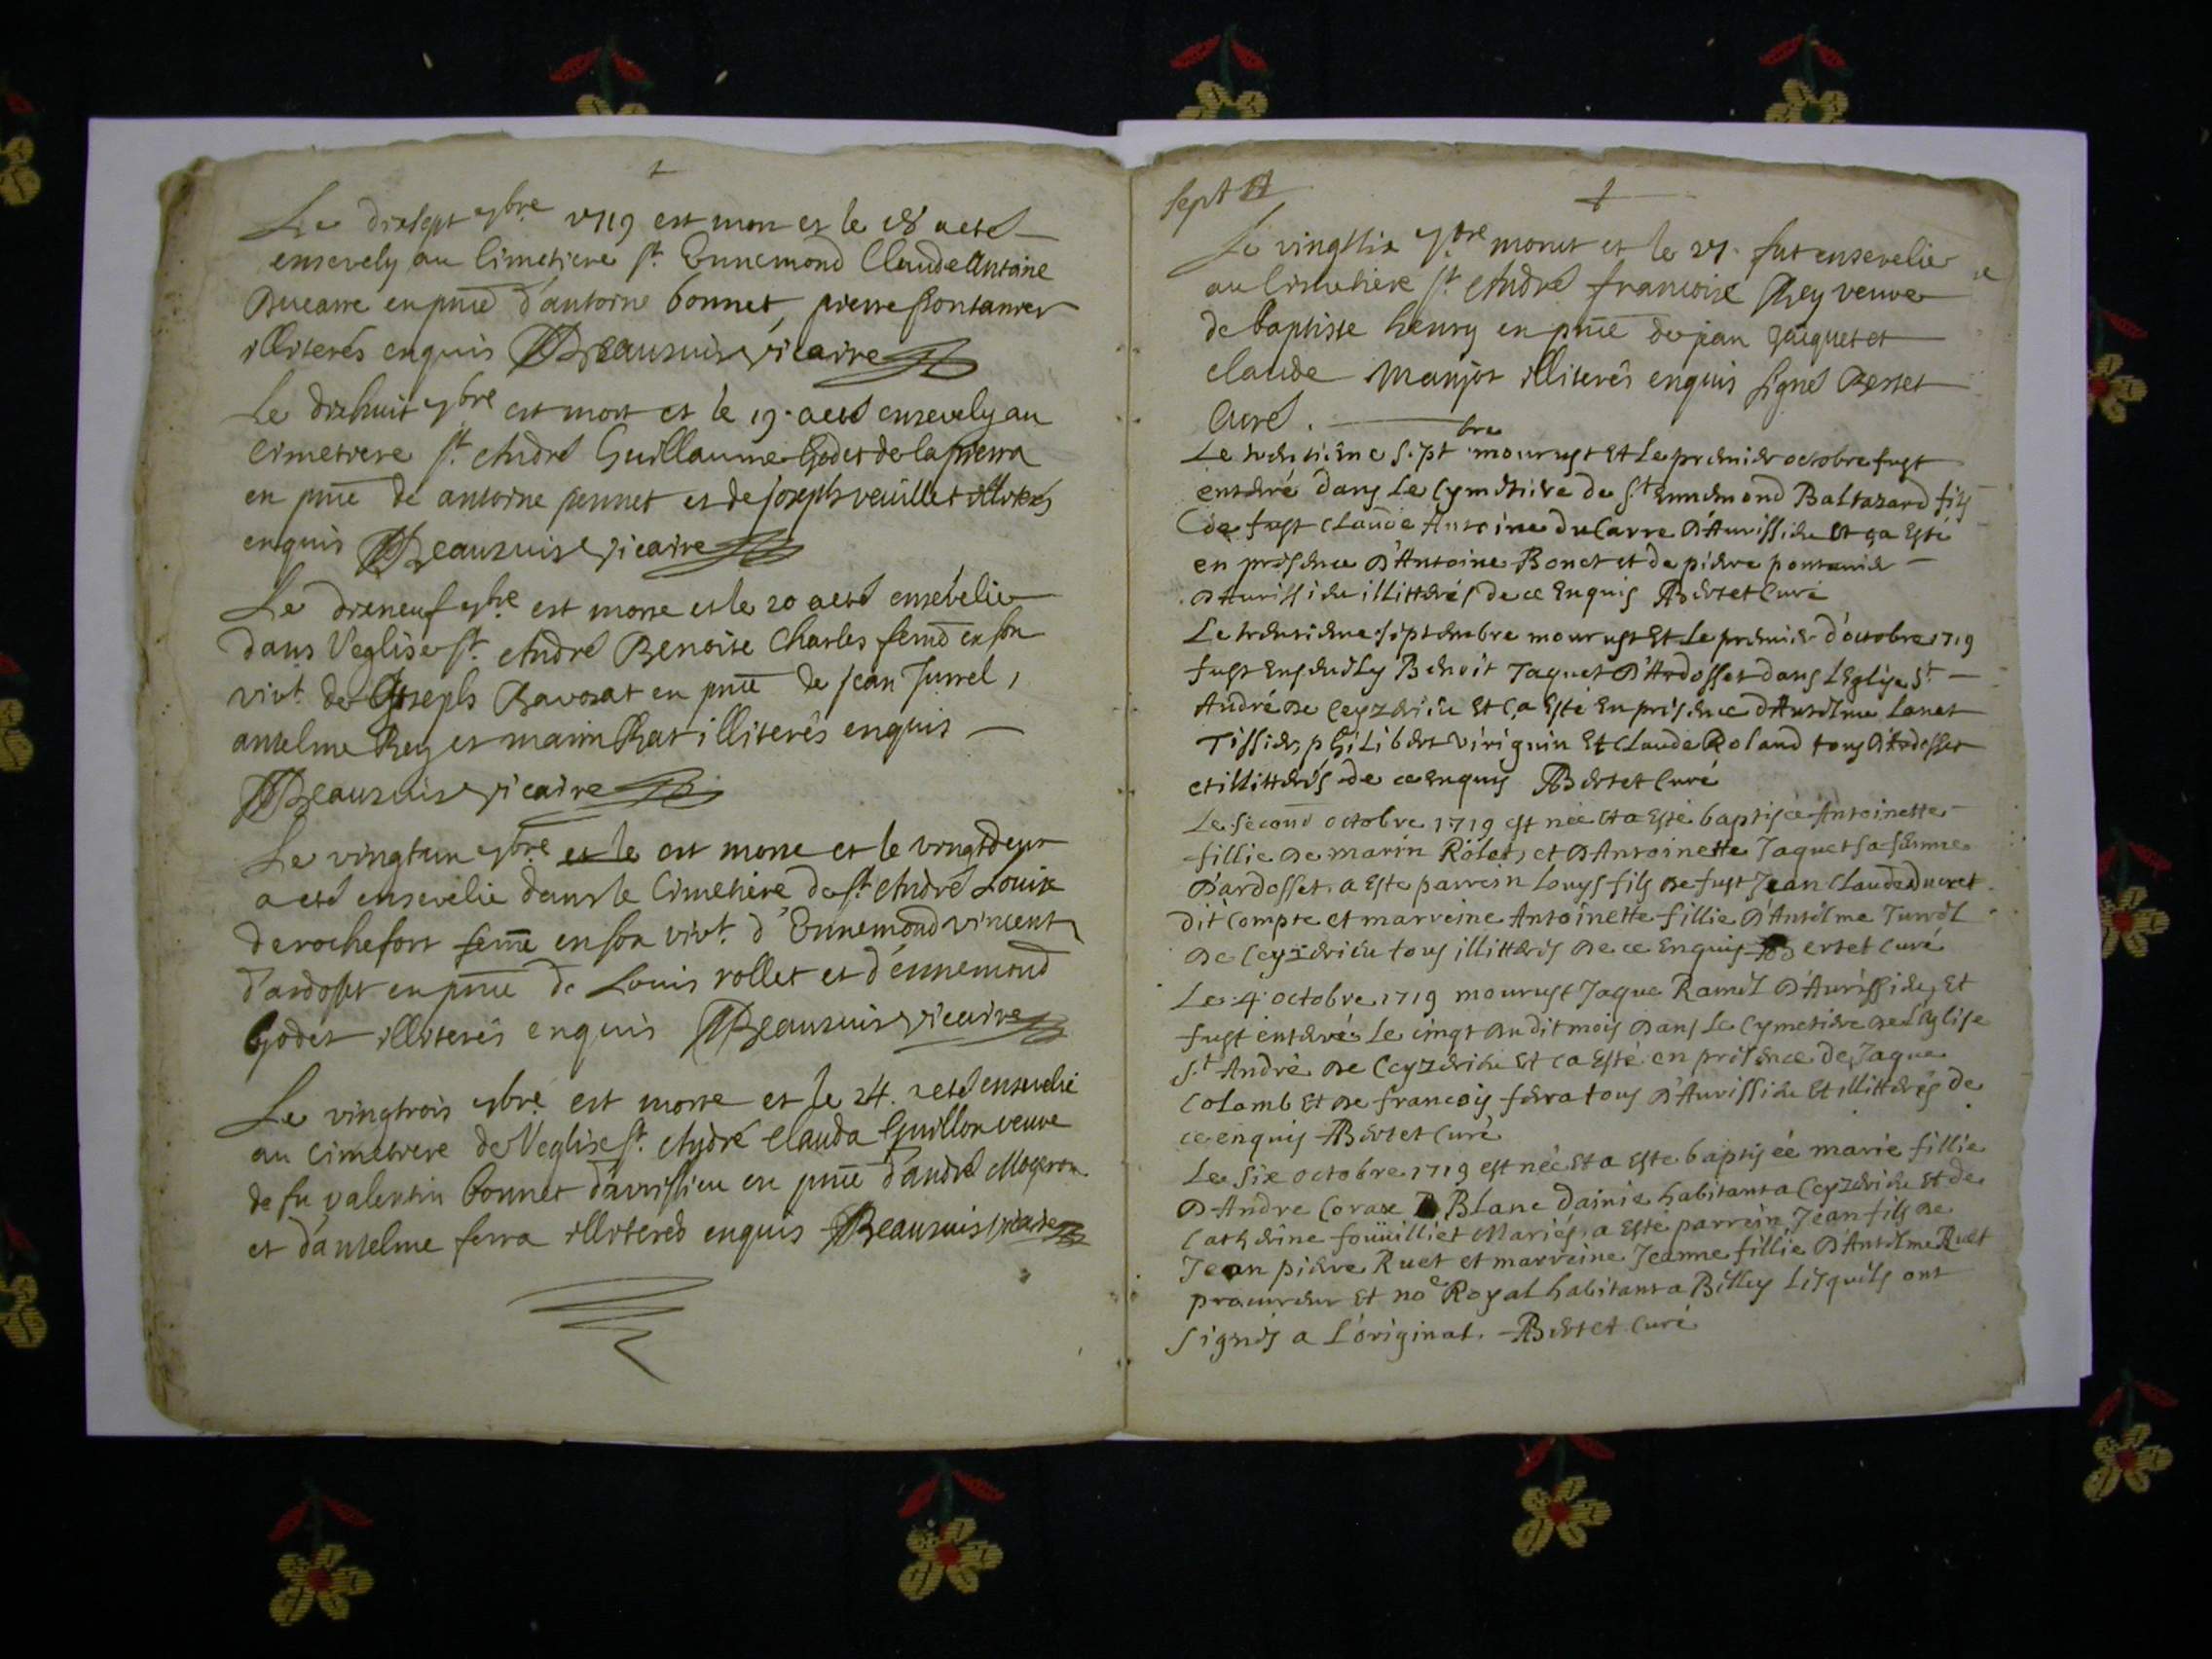 Le dixsept 7bre 1719 est mort et le 18 a esté
ensevely au Cimetiere St. Ennemond Claude Antoine
Ducarre en pnce d'antoine bonnet, pierre pontanier
illiterés enquis Beausuis vicaire
Le dixhuit 7bre est mort et le 19. a esté ensevely au
Cimetiere St. André Guillaume Godet de la
en pnce de antoine pennet et de joseph veuillet illiterés
enquis Beausuis vicaire
Le dixneuf 7bre est morte et le 20 a esté ensévelie
dans l'eglise St. André Benoite Charles feme en son
vivt. de Joseph Bavozat en pnce de jean Jurrel,
antelme Rey et marin Rat illiterés enquis
Beausuis vicaire
Le vingtun 7bre et le est morte et le vingtdeux
a esté ensevelie dans le Cimetiere de St. André Louise
derochefort feme en son vivt. d'Ennemond vincent
d'ardosset en pnce de Louis rollet et d'ennemond
Godet illiterés enquis Beausuis vicaire
Le vingtrois 7bre est morte et le 24. a esté ensevelie
au cimetiere de l'eglise St. André Clauda Guillon veuve
de fu valentin bonnet d'avrissieu en pnce d'andré Mogeron
et d'antelme ferra illiterés enquis Beausuis vicaire
Sept
Le vingtsix 7bre morut et le 27. fut ensevelie
au cimetiere St. André francoise Rey veuve
de baptiste henry en pnce de jean Jacquet et
claude Manjot illiterés enquis signé Bertet
Curé.
Le trentiéne Septbre mourust Et Le premier octobre fust
enterré dans Le Cymetiere de St. Ennemond Baltazard fils
de fust Claude Antoine du Carre D'Aurissieu Et ça Esté
en presence D'Antoine Bonet et de pierre pontanier
D'Aurissieu illitterés de ce Enquis Bertet Curé
Le trentiene septembre mourust Et Le premier d'octobre 1719
fust Ensevely Benoit Jaquet D'Ardosset dans L'Eglise St.
André de Ceyzerieu Et ça Esté En presence d'Antelme Lanet
Tissier, philibert viriguin Et Claude Roland tous D'Ardosset
et illitterés de ce enquis Bertet Curé
Le second octobre 1719 est née et a Esté baptisée Antoinette
fillie de marin Rolet, et D'Antoinette Jaquet sa femme
D'ardosset, a Esté parrein Louys fils de fust Jean Claude ducret
dit Compte et marreine Antoinette fillie D'Antelme Jurrel
de Ceyzerieu tous illitterés de ce Enquis Bertet Curé
Le 4 octobre 1719 mourust Jaque Ramel D'Aurissieu, Et
fust enterré Le cinqt dudit mois dans Le Cymetiere de L'Eglise
St. André de Ceyzerieu Et ça Esté en presence de Jaque
Colomb Et de francois ferra tous D'Aurissieu Et illitterés de
ce enquis Bertet Curé
Le Six octobre 1719 est née Et a Esté baptisée marie fillie
D'Andre Corax Blanc dainie habitant a Ceyzerieu Et de
Catherine fouilliet Mariés, a Esté parrein Jean fils de
Jean pierre Ruet et marreine Jeanne fillie D'Antelme Ruet
procureur Et noe Royal habitant a Billey Lesquels ont
Signés a L'original. Bertet Curé